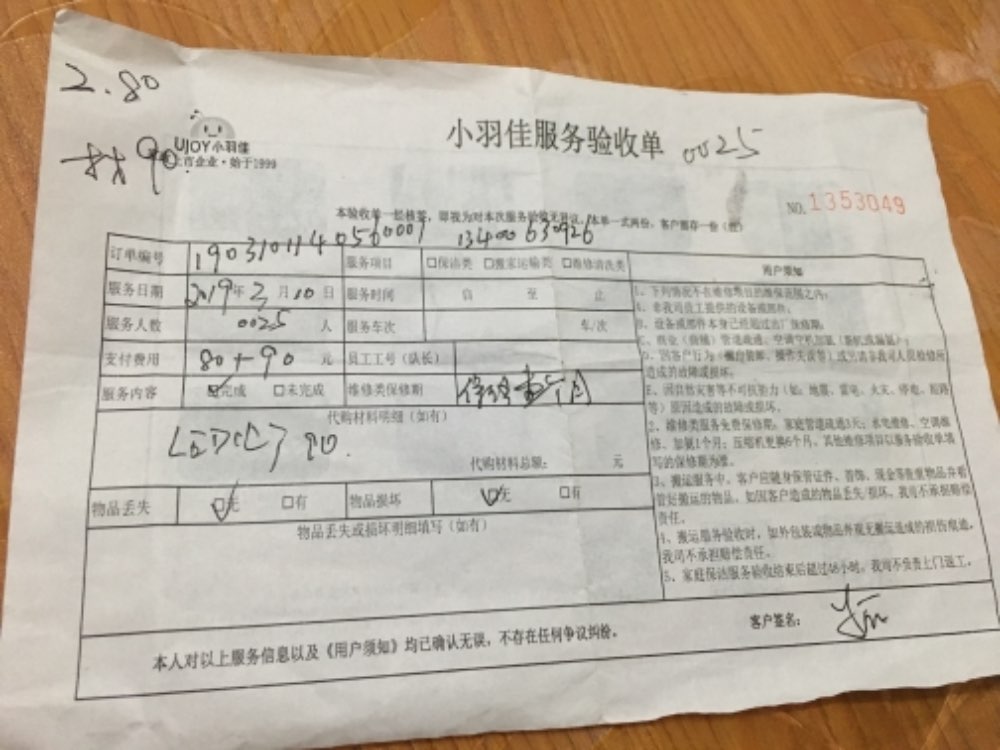 2.80
找90
UJOY小羽佳
上市企业·始于1999
小羽佳服务验收单 0025
NO. 1353049
本验收单一经核签,即视为对本次服务验收无异议,本单一式两份,客户留存一份(红)
订单编号 1903101140560001 13400630926
服务项目 □保洁类 □搬家运输类 □维修清洗类
服务日期 2019年3月10日 服务时间 自 至 止
服务人数 0025 人 服务车次 车/次
支付费用 80+90 元 员工工号(队长)
服务内容 ☑完成 □未完成 维修类保修期 个月
代购材料明细(如有)
LED灯 90.
代购材料总额: 元
物品丢失 ☑无 □有 物品损坏 ☑无 □有
物品丢失或损坏明细填写(如有)
用户须知
1、下列情况不在维修项目的维保范围之内:
A、非我司员工提供的设备或部件。
B、设备或部件本身已经超过出厂保修期。
C、商业(店铺)管道疏通、空调空机加氟(新机或漏氟)。
D、因客户行为(擅自装卸、操作失误等)或完请非我司人员检修所
造成的故障或损坏。
E、因自然灾害等不可抗势力(如:地震、雷电、火灾、停电、短路
等)原因造成的故障或损坏。
2、维修类服务免费保修期:家庭管道疏通3天;水电维修、空调维
修、加氟1个月;压缩机更换6个月,其他维修项目以服务验收单填
写的保修期为准。
3、搬运服务中,客户应随身保管证件、首饰、现金等贵重物品并看
管好搬运的物品,如因客户造成的物品丢失/损坏,我司不承担赔偿
责任。
4、搬运服务验收时,如外包装或物品外观无搬运造成的损伤痕迹,
我司不承担赔偿责任。
5、家庭保洁服务验收结束后超过48小时,我司不负责上门返工。
本人对以上服务信息以及《用户须知》均已确认无误,不存在任何争议纠纷。
客户签名: